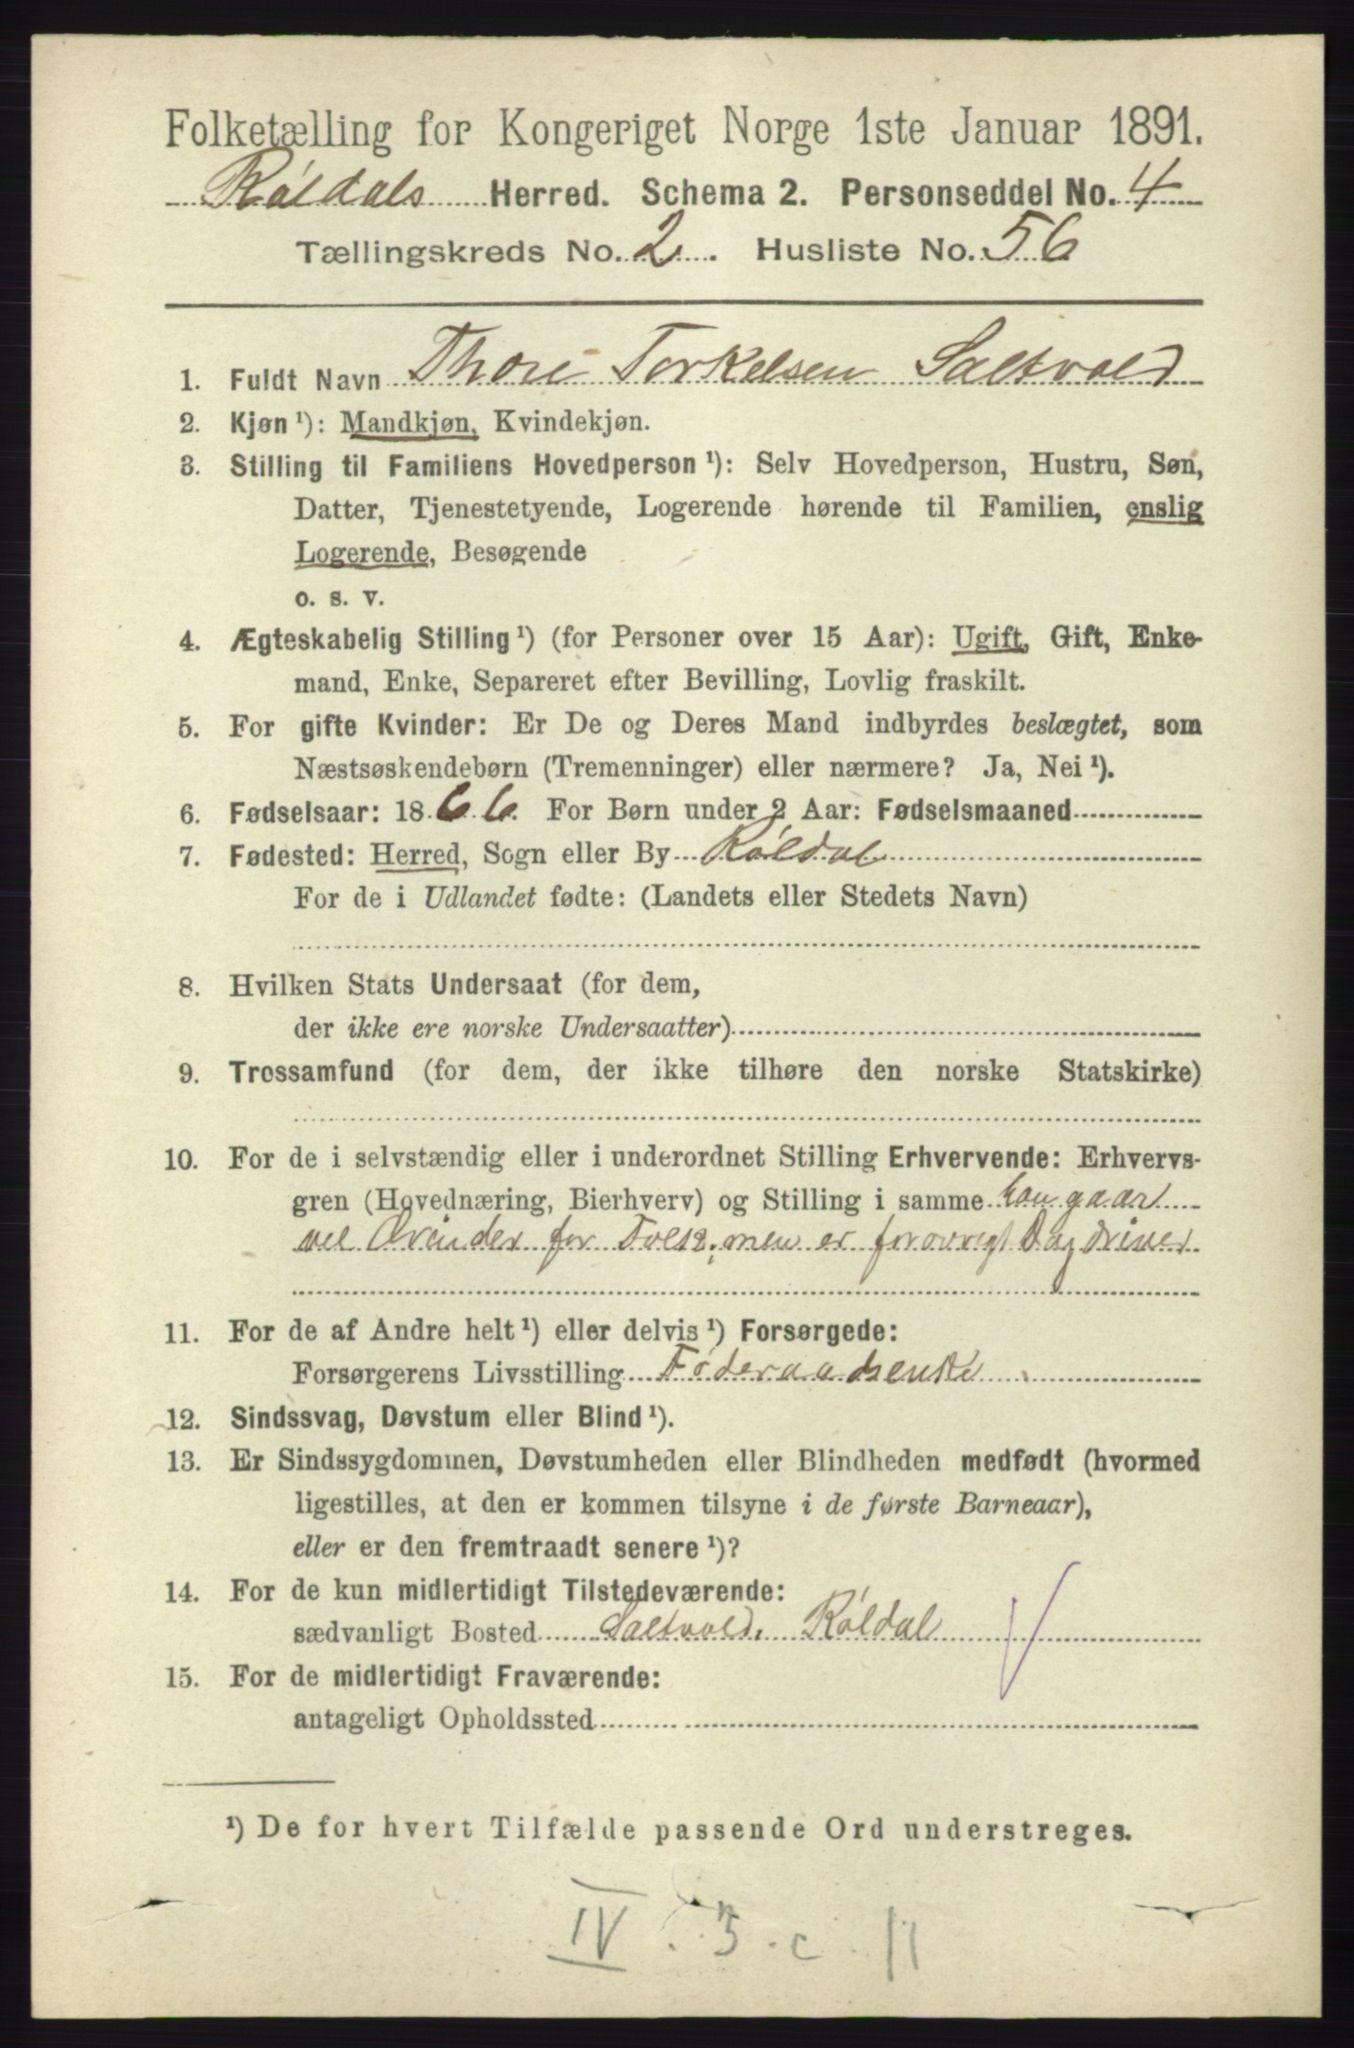 Folketælling for Kongeriget Norge 1ste Januar 1891.
Røldals Herred. Schema 2. Personseddel No. 4
Tællingskreds No. 2. Husliste No. 56
1. Fuldt Navn Thore Torkelsen Saltvold
2. Kjøn ¹): Mandkjøn, Kvindekjøn.
3. Stilling til Familiens Hovedperson ¹): Selv Hovedperson, Hustru, Søn,
Datter, Tjenestetyende, Logerende hørende til Familien, enslig
Logerende, Besøgende
o. s. v.
4. Ægteskabelig Stilling ¹) (for Personer over 15 Aar): Ugift, Gift, Enke-
mand, Enke, Separeret efter Bevilling, Lovlig fraskilt.
5. For gifte Kvinder: Er De og Deres Mand indbyrdes beslægtet, som
Næstsøskendebørn (Tremenninger) eller nærmere? Ja, Nei ¹).
6. Fødselsaar: 1866. For Børn under 2 Aar: Fødselsmaaned
7. Fødested: Herred, Sogn eller By Røldal
For de i Udlandet fødte: (Landets eller Stedets Navn)
8. Hvilken Stats Undersaat (for dem,
der ikke ere norske Undersaatter)
9. Trossamfund (for dem, der ikke tilhøre den norske Statskirke)
10. For de i selvstændig eller i underordnet Stilling Erhvervende: Erhvervs-
gren (Hovednæring, Bierhverv) og Stilling i samme han gaar
vel Ærinder for Folk, men er forøvrigt Dagdriver
11. For de af Andre helt ¹) eller delvis ¹) Forsørgede:
Forsørgerens Livsstilling Føderaadsenke
12. Sindssvag, Døvstum eller Blind ¹).
13. Er Sindssygdommen, Døvstumheden eller Blindheden medfødt (hvormed
ligestilles, at den er kommen tilsyne i de første Barneaar),
eller er den fremtraadt senere ¹)?
14. For de kun midlertidigt Tilstedeværende:
sædvanligt Bosted Saltvold, Røldal
15. For de midlertidigt Fraværende:
antageligt Opholdssted
¹) De for hvert Tilfælde passende Ord understreges.
IV. 3. c. 11